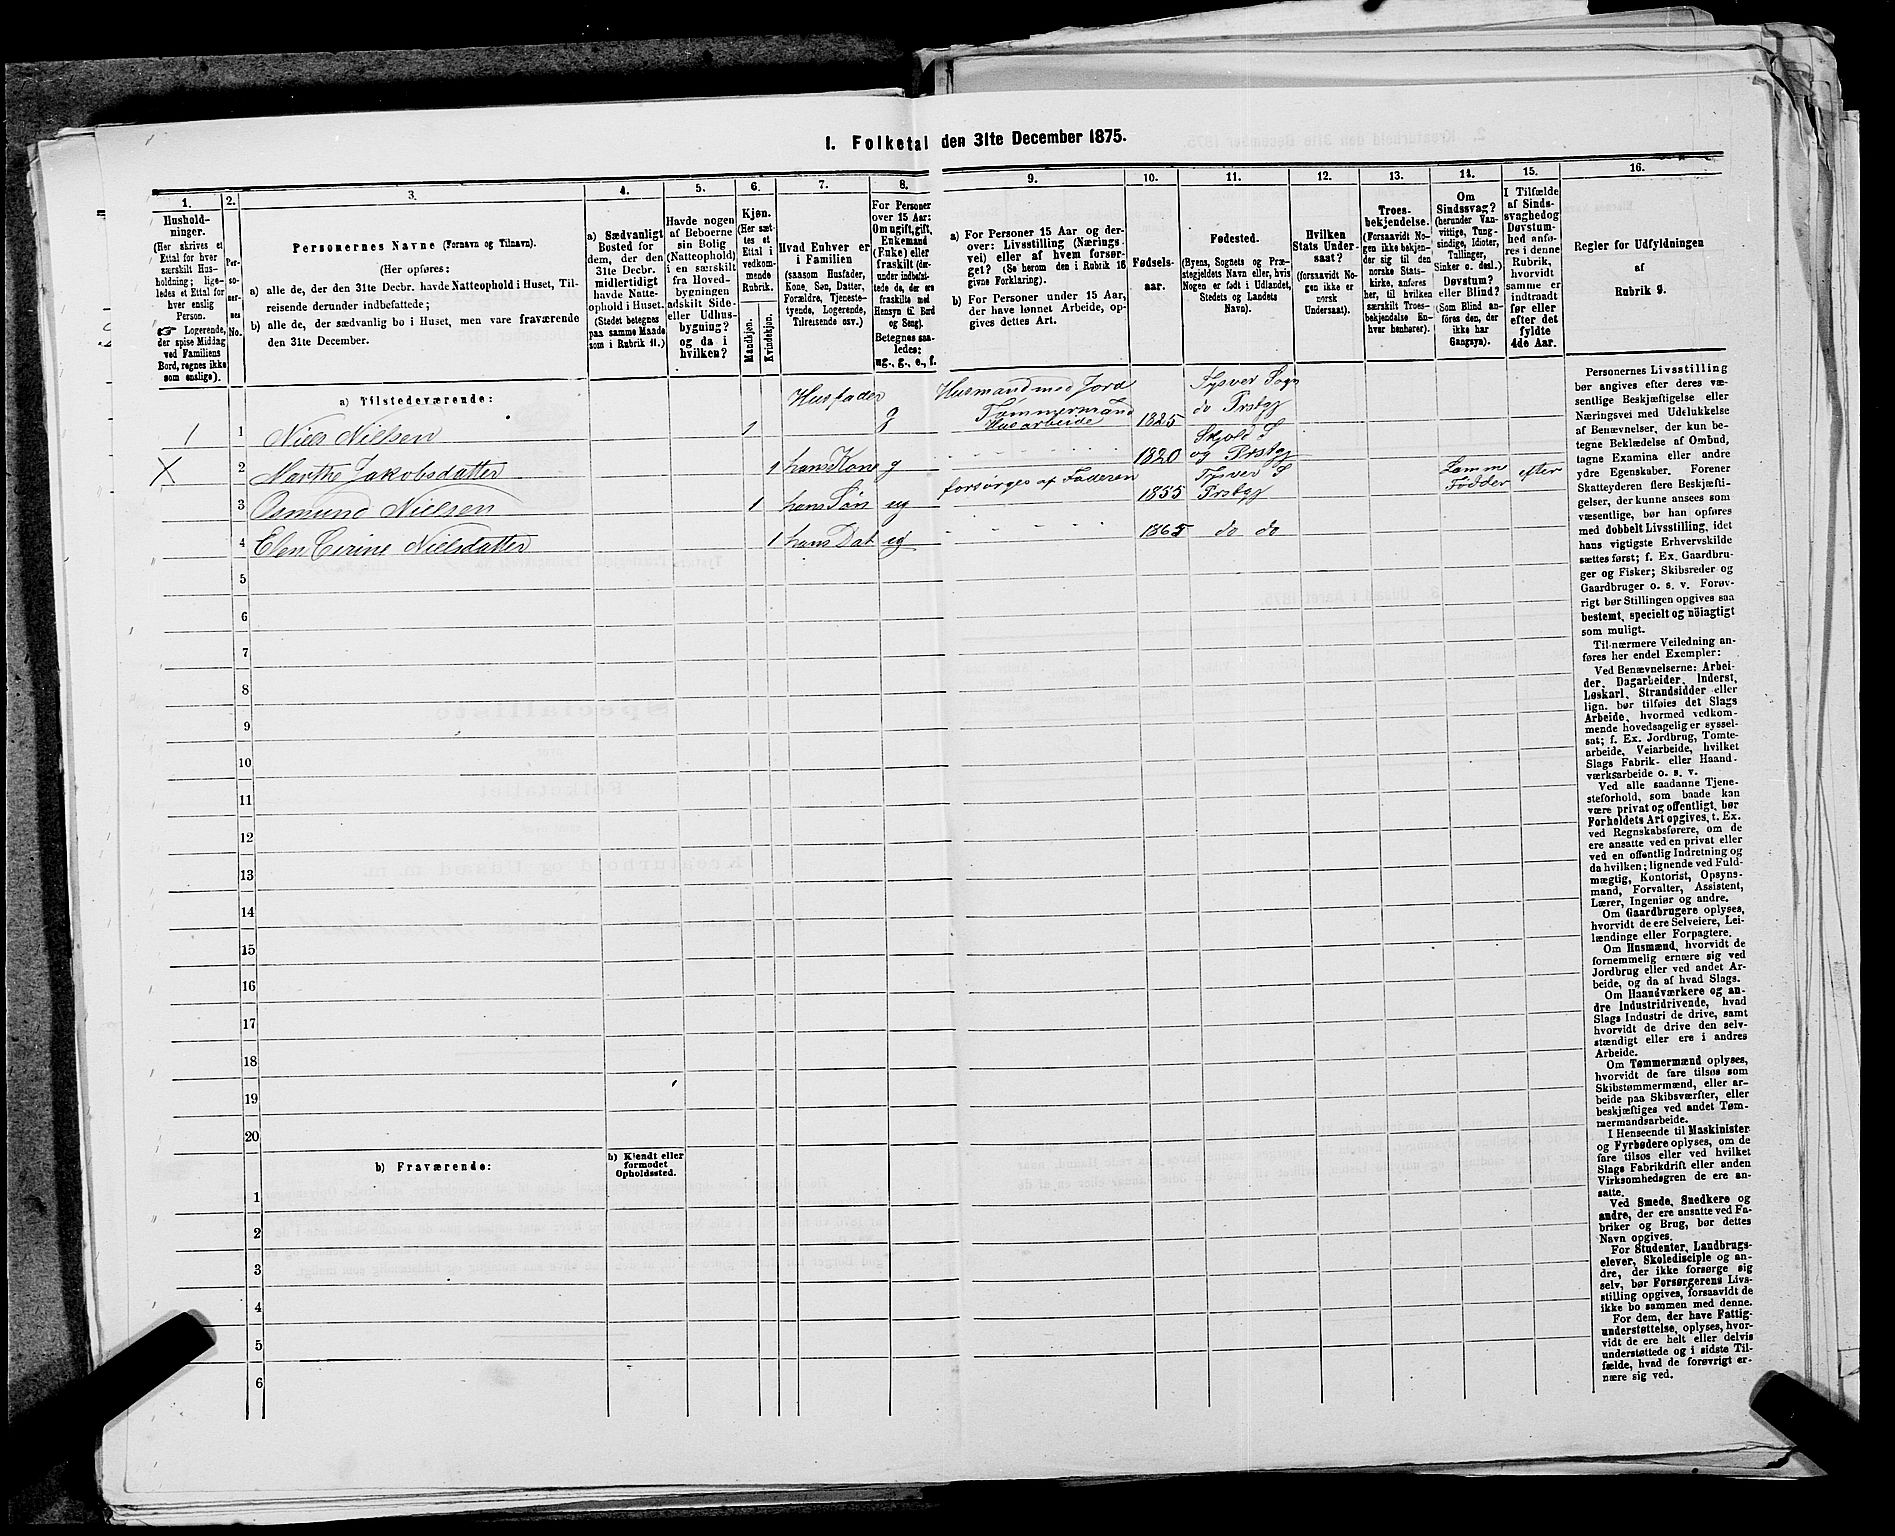 I. Folketal den 31te December 1875.
1. 2. 3. 4. 5. 6. 7. 8. 9. 10. 11. 12. 13. 14. 15. 16.
Hushold-
ninger.
(Her skrives et
Ettal for hver
særskilt Hus-
holdning; lige-
ledes et Ettal for
hver enslig
Person.
☞ Logerende,
der spise Middag
ved Familiens
Bord, regnes ikke
som enslige).
Per-
so-
ner-
nes
No.
Personernes Navne (Fornavn og Tilnavn).
(Her opføres:
a) alle de, der den 31te Decbr. havde Natteophold i Huset, Til-
reisende derunder indbefattede;
b) alle de, der sædvanlig bo i Huset, men vare fraværende
den 31te December.
a) Sædvanligt
Bosted for
dem, der den
31te Decbr.
midlertidigt
havde Natte-
ophold i Huset.
(Stedet betegnes
paa samme Maade
som i Rubrik 11.)
Havde nogen
af Beboerne
sin Bolig
(Natteophold)
i en særskilt
fra Hoved-
bygningen
adskilt Side-
eller Udhus-
bygning?
og da i
hvilken?
Kjøn.
(Her sæt-
tes et
Ettal i
vedkom-
mende
Rubrik.
Mandkjøn.
Kvindekjøn.
Hvad Enhver er
i Familien
(saasom Husfader,
Kone, Søn, Datter,
Forældre, Tjeneste-
tyende, Logerende,
Tilreisende osv.)
For Personer
over 15 Aar:
Om ugift, gift,
Enkemand
(Enke) eller
fraskilt (der-
under indbefat-
tede de, der ere
fraskilte med
Hensyn til Bord
og Seng).
Betegnes saa-
ledes:
ug., g., e., f.
a) For Personer 15 Aar og der-
over: Livsstilling (Nærings-
vei) eller af hvem forsør-
get? (Se herom den i Rubrik 16
givne Forklaring).
b) For Personer under 15 Aar,
der have lønnet Arbeide, op-
gives dettes Art.
Fødsels-
aar.
Fødested.
(Byens, Sognets og Præ-
stegjeldets Navn eller, hvis
Nogen er født i Udlandet,
Stedets og Landets
Navn).
Hvilken
Stats Under-
saat?
(forsaavidt No-
gen ikke er
norsk
Undersaat).
Troes-
bekjendelse.
(Forsaavidt No-
gen ikke bekjen-
der sig til den
norske Stats-
kirke, anføres
her, til hvilken
særskilt Troes-
bekjendelse En-
hver henhører).
Om
Sindssvag?
(herunder Van-
vittige, Tung-
sindige, Idioter,
Tullinger,
Sinker o. desl.)
Døvstum?
eller Blind?
(Som Blind an-
føres den, der
ikke har
Gangsyn).
I Tilfælde
af Sinds-
svaghed og
Døvstum-
hed anfø-
res i denne
Rubrik,
hvorvidt
samme er
indtraadt
før eller
efter det
fyldte
4de Aar.
Regler for Udfyldningen
af
Rubrik 9.
a) Tilstedeværende:
1 1 Niels Nielsen 1 Husfader g Husmand med Jord Tømmermand Husarbeide 1825 Tysver Sogn do Prstgj
X 2 Marthe Jakobsdatter 1 hans Kone g - - - - - - 1820 Skjold S og Prstgj
3 Osmund Nielsen 1 hans Søn ug forsørges af Faderen 1855 Tysver S Prstgj Lamme Fødder efter
4 Elen Cerine Nielsdatter 1 hans Dat ug - - - - - - 1865 do do
5
6
7
8
9
10
11
12
13
14
15
16
17
18
19
20
b) Fraværende:
b) Kjendt eller
formodet
Opholdssted.
1
2
3
4
5
6
Personernes Livsstilling
bør angives efter deres væ-
sentlige Beskjæftigelse eller
Næringsvei med Udelukkelse
af Benævnelser, der kun be-
tegne Beklædelse af Ombud,
tagne Examina eller andre
ydre Egenskaber. Forener
Skatteyderen flere Beskjæfti-
gelser, der kunne ansees som
væsentlige, bør han opføres
med dobbelt Livsstilling, idet
hans vigtigste Erhvervskilde
sættes først; f. Ex. Gaardbru-
ger og Fisker; Skibsreder og
Gaardbruger o. s. v. Forøv-
rigt bør Stillingen opgives saa
bestemt, specielt og nöiagtigt
som muligt.
Til nærmere Veiledning an-
føres her endel Exempler:
Ved Benævnelserne: Arbei-
der, Dagarbeider, Inderst,
Løskarl, Strandsidder eller
lign. bør tilføies det Slags
Arbeide, hvormed vedkom-
mende hovedsagelig er syssel-
sat; f. Ex. Jordbrug, Tomte-
arbeide, Veiarbeide, hvilket
Slags Fabrik- eller Haand-
værksarbeide o. s. v.
Ved alle saadanne Tjene-
steforhold, som baade kan
være privat og offentligt, bør
Forholdets Art opgives, t. Ex.
ved Regnskabsførere, om de
ere ansatte ved en privat eller
ved en offentlig Indretning og
da hvilken; lignende ved Fuld-
mægtig, Kontorist, Opsyns-
mand, Forvalter, Assistent,
Lærer, Ingeniør og andre.
Om Gaardbrugere oplyses,
hvorvidt de ere Selveiere, Lei-
lændinge eller Forpagtere.
Om Husmænd, hvorvidt de
fornemmelig ernære sig ved
Jordbrug eller ved andet Ar-
beide, og da af hvad Slags.
Om Haandværkere og an-
dre Industridrivende, hvad
Slags Industri de drive, samt
hvorvidt de drive den selv-
stændigt eller ere i andres
Arbeide.
Om Tømmermænd oplyses,
hvorvidt de fare tilsøs som
Skibstømmermænd, eller ar-
beide paa Skibsværfter, eller
beskjæftiges ved andet Tøm-
mermandsarbeide.
I Henseende til Maskinister
og Fyrbødere oplyses, om de
fare tilsøs eller ved hvilket
Slags Fabrikdrift eller anden
Virksomhedsgren de ere an-
satte.
Ved Smede, Snedkere og
andre, der ere ansatte ved Fa-
briker og Brug, bør dettes
Navn opgives.
For Studenter, Landbrugs-
elever, Skoledisciple og an-
dre, der ikke forsørge sig
selv, bør Forsørgerens Livs-
stilling opgives, forsaavidt de
ikke bo sammen med denne.
For dem, der have Fattig-
understøttelse, oplyses, hvor-
vidt de ere helt eller delvis
understøttede og i sidste Til-
fælde, hvad de forøvrigt er-
nære sig ved.